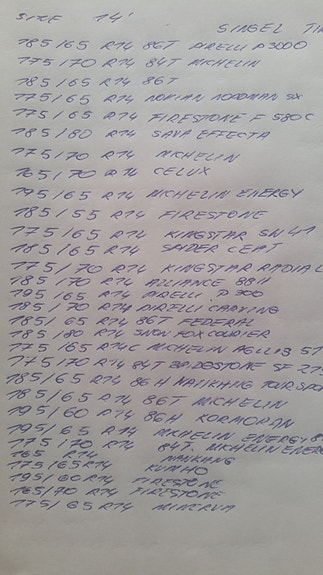 SIZE 14'
SINGEL
185/65 R14 86T PIRELLI P3000
175/70 R14 84T MICHELIN
185/65 R14 86T
175/65 R14 NOKIAN NORDMAN SX
175/65 R14 FIRESTONE F 580C
185/80 R14 SAVA EFFECTA
175/70 R14 MICHELIN
165/70 R14 CELUX
195/65 R14 MICHELIN ENERGY
185/55 R14 FIRESTONE
175/65 R14 KINGSTAR SW41
185/65 R14 SPIDER CEAT
175/70 R14 KINGSTAR RADIAL
185/70 R14 ALLIANCE 88H
195/65 R14 PIRELLI P300
185/70 R14 PIRELLI
185/65 R14 86T FEDERAL
185/80 R14 SNOW FOX COURIER
175/65 R14C MICHELIN AGILIS 51
175/70 R14 84T BRIDGESTONE SF
185/65 R14 86H NANKANG
185/65 R14 86T MICHELIN
195/60 R14 86H KORMORAN
195/65 R14 MICHELIN ENERGY
175/70 R14 84T. MICHELIN ENERGY
165 R14 NANKANG
175/65 R14 KUMHO
195/60 R14 FIRESTONE
165/70 R14 FIRESTONE
175/65 R14 MINERVA